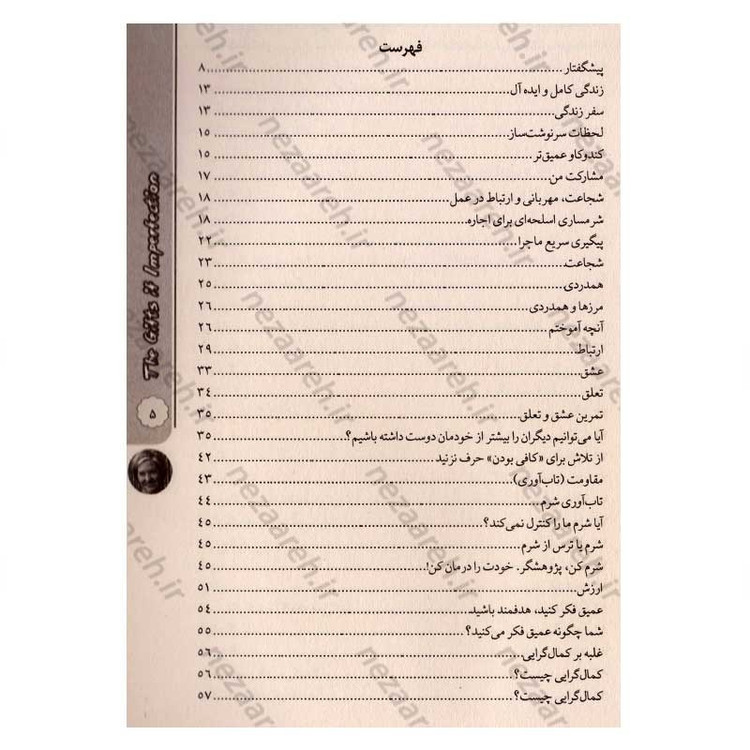 فهرست
پیشگفتار ........ ۸
زندگی کامل و ایده آل ........ ۱۳
سفر زندگی ........ ۱۳
لحظات سرنوشت‌ساز ........ ۱۵
کندوکاو عمیق‌تر ........ ۱۵
مشارکت من ........ ۱۷
شجاعت، مهربانی و ارتباط در عمل ........ ۱۸
شرمساری اسلحه‌ای برای اجاره ........ ۱۸
پیگیری سریع ماجرا ........ ۲۲
شجاعت ........ ۲۳
همدردی ........ ۲۵
مرزها و همدردی ........ ۲۶
آنچه آموختم ........ ۲۶
ارتباط ........ ۲۹
عشق ........ ۳۳
تعلق ........ ۳۴
تمرین عشق و تعلق ........ ۳۵
آیا می‌توانیم دیگران را بیشتر از خودمان دوست داشته باشیم؟ ........ ۳۵
از تلاش برای «کافی بودن» حرف نزنید ........ ۴۲
مقاومت (تاب‌آوری) ........ ۴۳
تاب‌آوری شرم ........ ۴۴
آیا شرم ما را کنترل نمی‌کند؟ ........ ۴۵
شرم یا ترس از شرم ........ ۴۵
شرم کن، پژوهشگر. خودت را درمان کن! ........ ۴۵
ارزش ........ ۵۱
عمیق فکر کنید، هدفمند باشید ........ ۵۴
شما چگونه عمیق فکر می‌کنید؟ ........ ۵۵
غلبه بر کمال‌گرایی ........ ۵۶
کمال‌گرایی چیست؟ ........ ۵۶
کمال‌گرایی چیست؟ ........ ۵۷
The Gifts of Imperfection
۵
nezaareh.ir